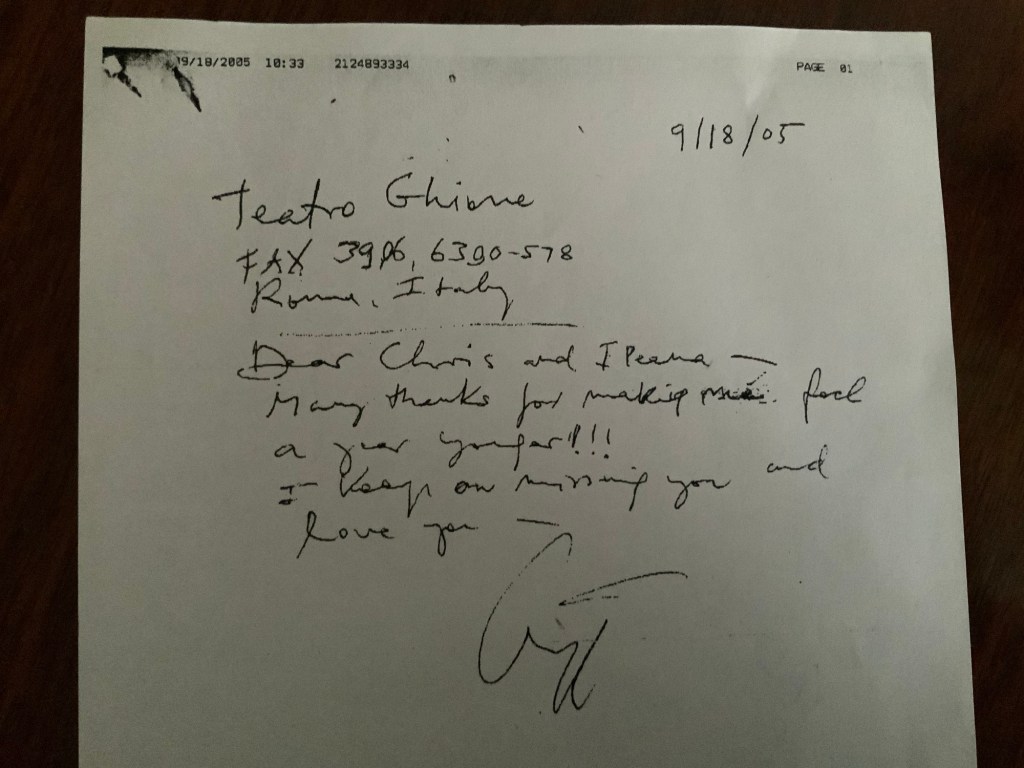 09/18/2005 10:33 2124893334 PAGE 01
9/18/05
Teatro Ghione
FAX 3906, 6390-578
Rome, Italy
Dear Chris and Ileana —
Many thanks for making me feel
a year younger!!!
I keep on missing you and
love you —